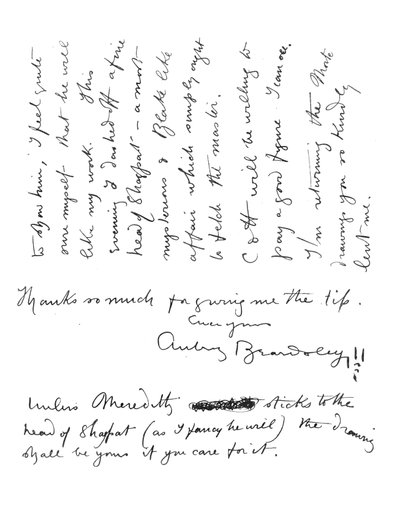 to show him, I feel quite
sure myself that he will
like my work. This
evening I dashed off a fine
head of Shagpat – a most
mysterious & Blake like
affair which simply ought
to fetch the master.
will be willing to
pay a good figure
I'm returning the Morte
drawings you so kindly
lent me.
Thanks so much for giving me the tip.
Ever yours
Aubrey Beardsley!!
Unless Meredith sticks to the
head of Shagpat (as I fancy he will) the drawing
shall be yours if you care for it.